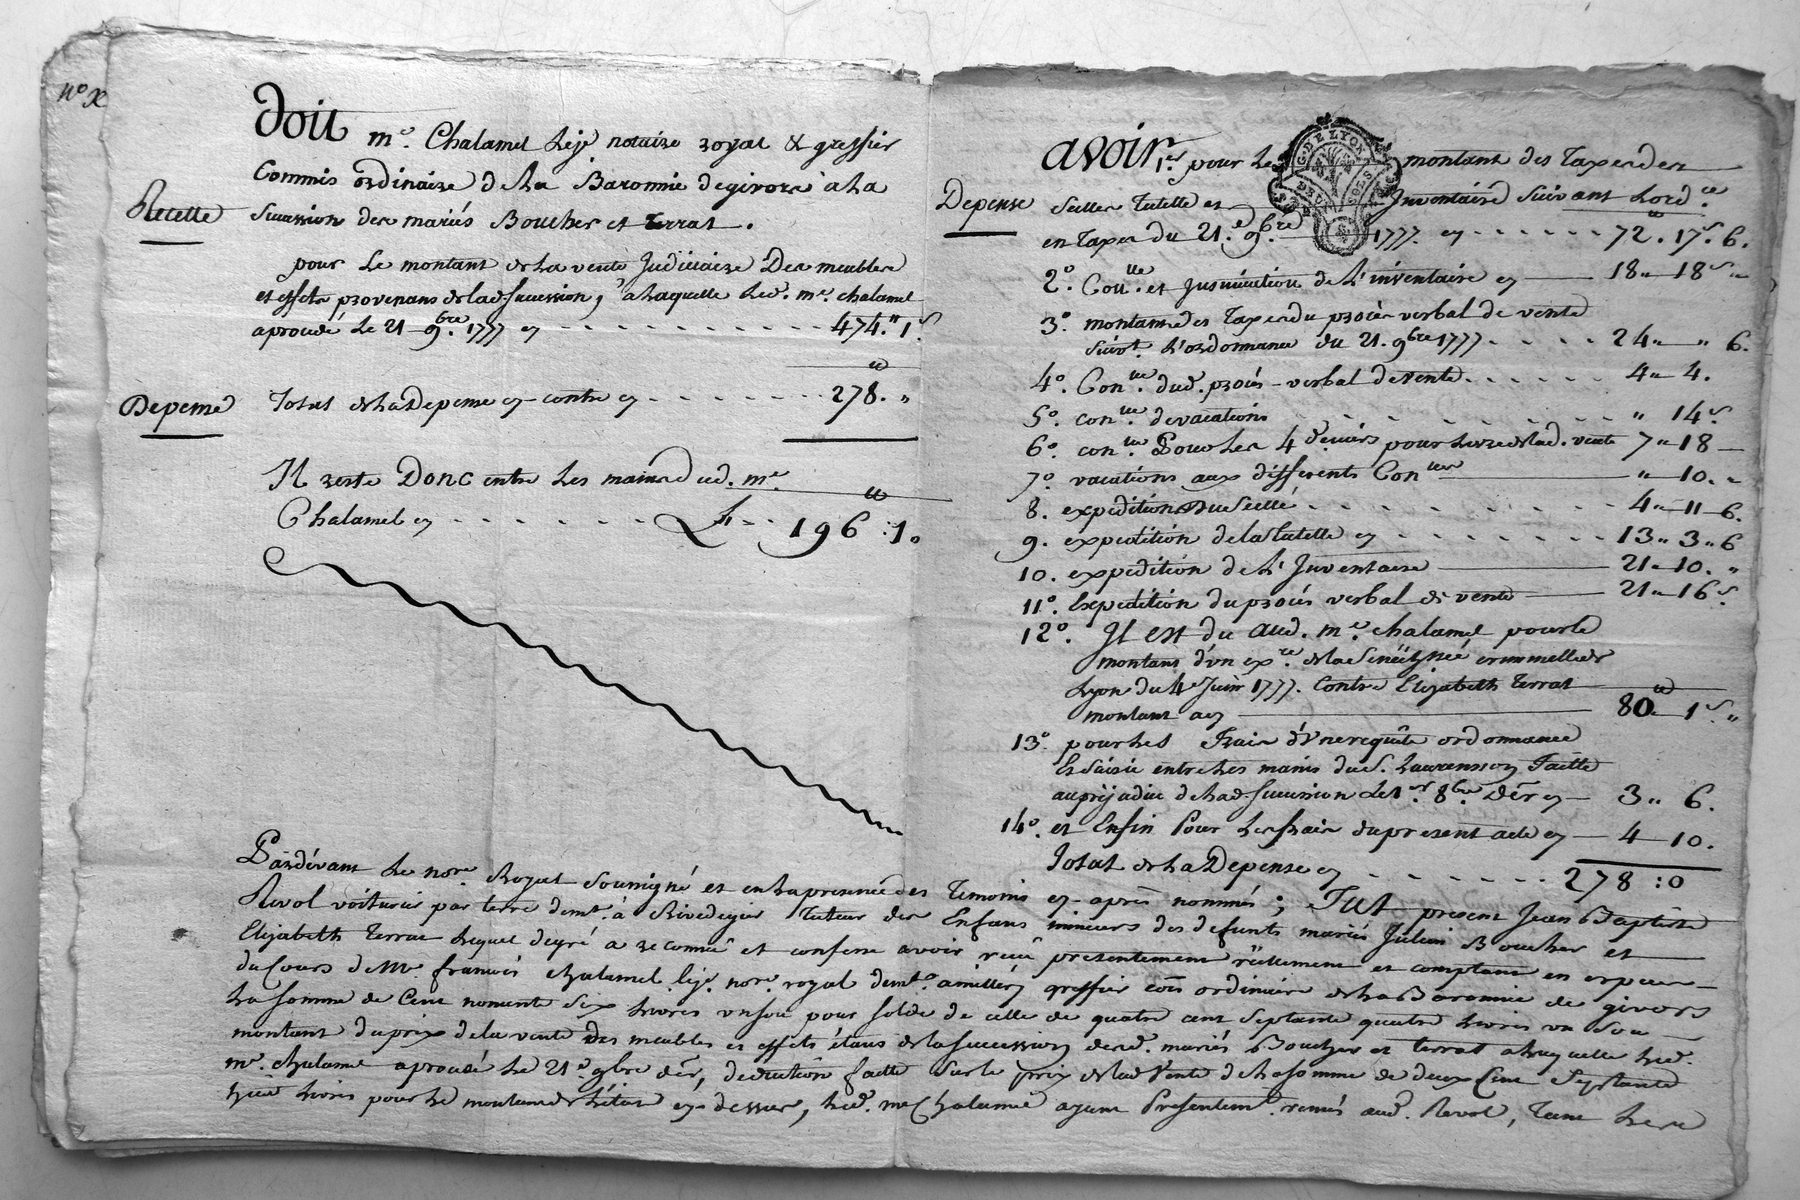 N° X
doit me. Chalamel Lejé notaire royal & greffier
Commis ordinaire de La Baronnie de givors a La
Recette
succession des mariés Boucher et terrat.
pour Le montant de La vente Judiciaire Des meubles
et effets provenans de lad. succession, a Laquelle Led. me. chalamel
a procédé Le 21 9bre. 1777 cy 474.# 1 s
Depense
Total de La Depense cy-contre cy 278. "
Il reste Donc entre Les mains dud. me.
Chalamel cy 196 :1.
avoir 1er. pour Le montant des Taxes des
G. DE LYON
DEUX SOLS
Depense
scellés Tutelle et Inventaire suivant Lord.ce
en Taxes du 21.e 9.bre 1777. cy 72. 17 s. 6.
2°. Con.lle et Insinuation de L'inventaire cy 18 " 18 s "
3°. montant des Taxes du procès verbal de vente
suivt. L'ordonnance du 21. 9bre 1777. 24 " " 6.
4°. Con.lle dud. procès-verbal de vente. 4 " 4.
5°. con.lle de vacations " 14 s
6°. con.lle Pour Les 4 deniers pour Livre de lad. vente 7 " 18
7°. vacations aux differents Con.lles " 10. "
8. expedition du scellé 4 " 11 6.
9. expedition de la Tutelle cy 13 " 3 " 6
10. expedition de L'Inventaire 21 " 10. "
11°. Expedition du procès verbal de vente 21 " 16 s.
12°. Il est du aud. me. chalamel pour le
montant d'un ex.re de la Sénéchssée criminelle de
Lyon du 4e Juin 1777. contre Elizabeth Terrat
montant a cy 80 # 1 s. "
13°. pour Les Frais d'Une requête ordonnance
Et saisie entre Les mains du S. Laurenson Faitte
au préjudice de Lad. succession Le 1er. 8bre. der cy 3 " 6.
14°. et Enfin Pour Les frais du present acte cy 4 10.
Total de La Depense cy 278 :0
Pardevant Le nore. Royal soussigné et en La presence des Temoins cy-après nommés; Fut present Jean Baptiste
Revol voiturier par terre demt. à Rivedegier Tuteur des Enfans mineurs des defunts mariés Julien Boucher et
Elizabeth Terrat Lequel de gré a reconnu et confesse avoir reçu presentement réellement et comptant en especes
du cours de Me. francois chalamel lejé. nore. royal demt. a millery greffier com ordinaire de La Baronnie de givors
La somme de Cent nonante six Livres un sou pour solde de celle de quatre cent septante quatre Livres un sou
montant du prix de la vente des meubles et effets étans de la succession desd. mariés Boucher et terrat a laquelle Led.
me. chalamel a procédé Le 21e. 9bre der, deduction faitte sur le prix de lad. Vente de La somme de deux Cent Septante
huit Livres pour Le montant de L'état cy-dessus, Led. me Chalamel ayant Presentemt. remis aud. Revol, Tant Lesd